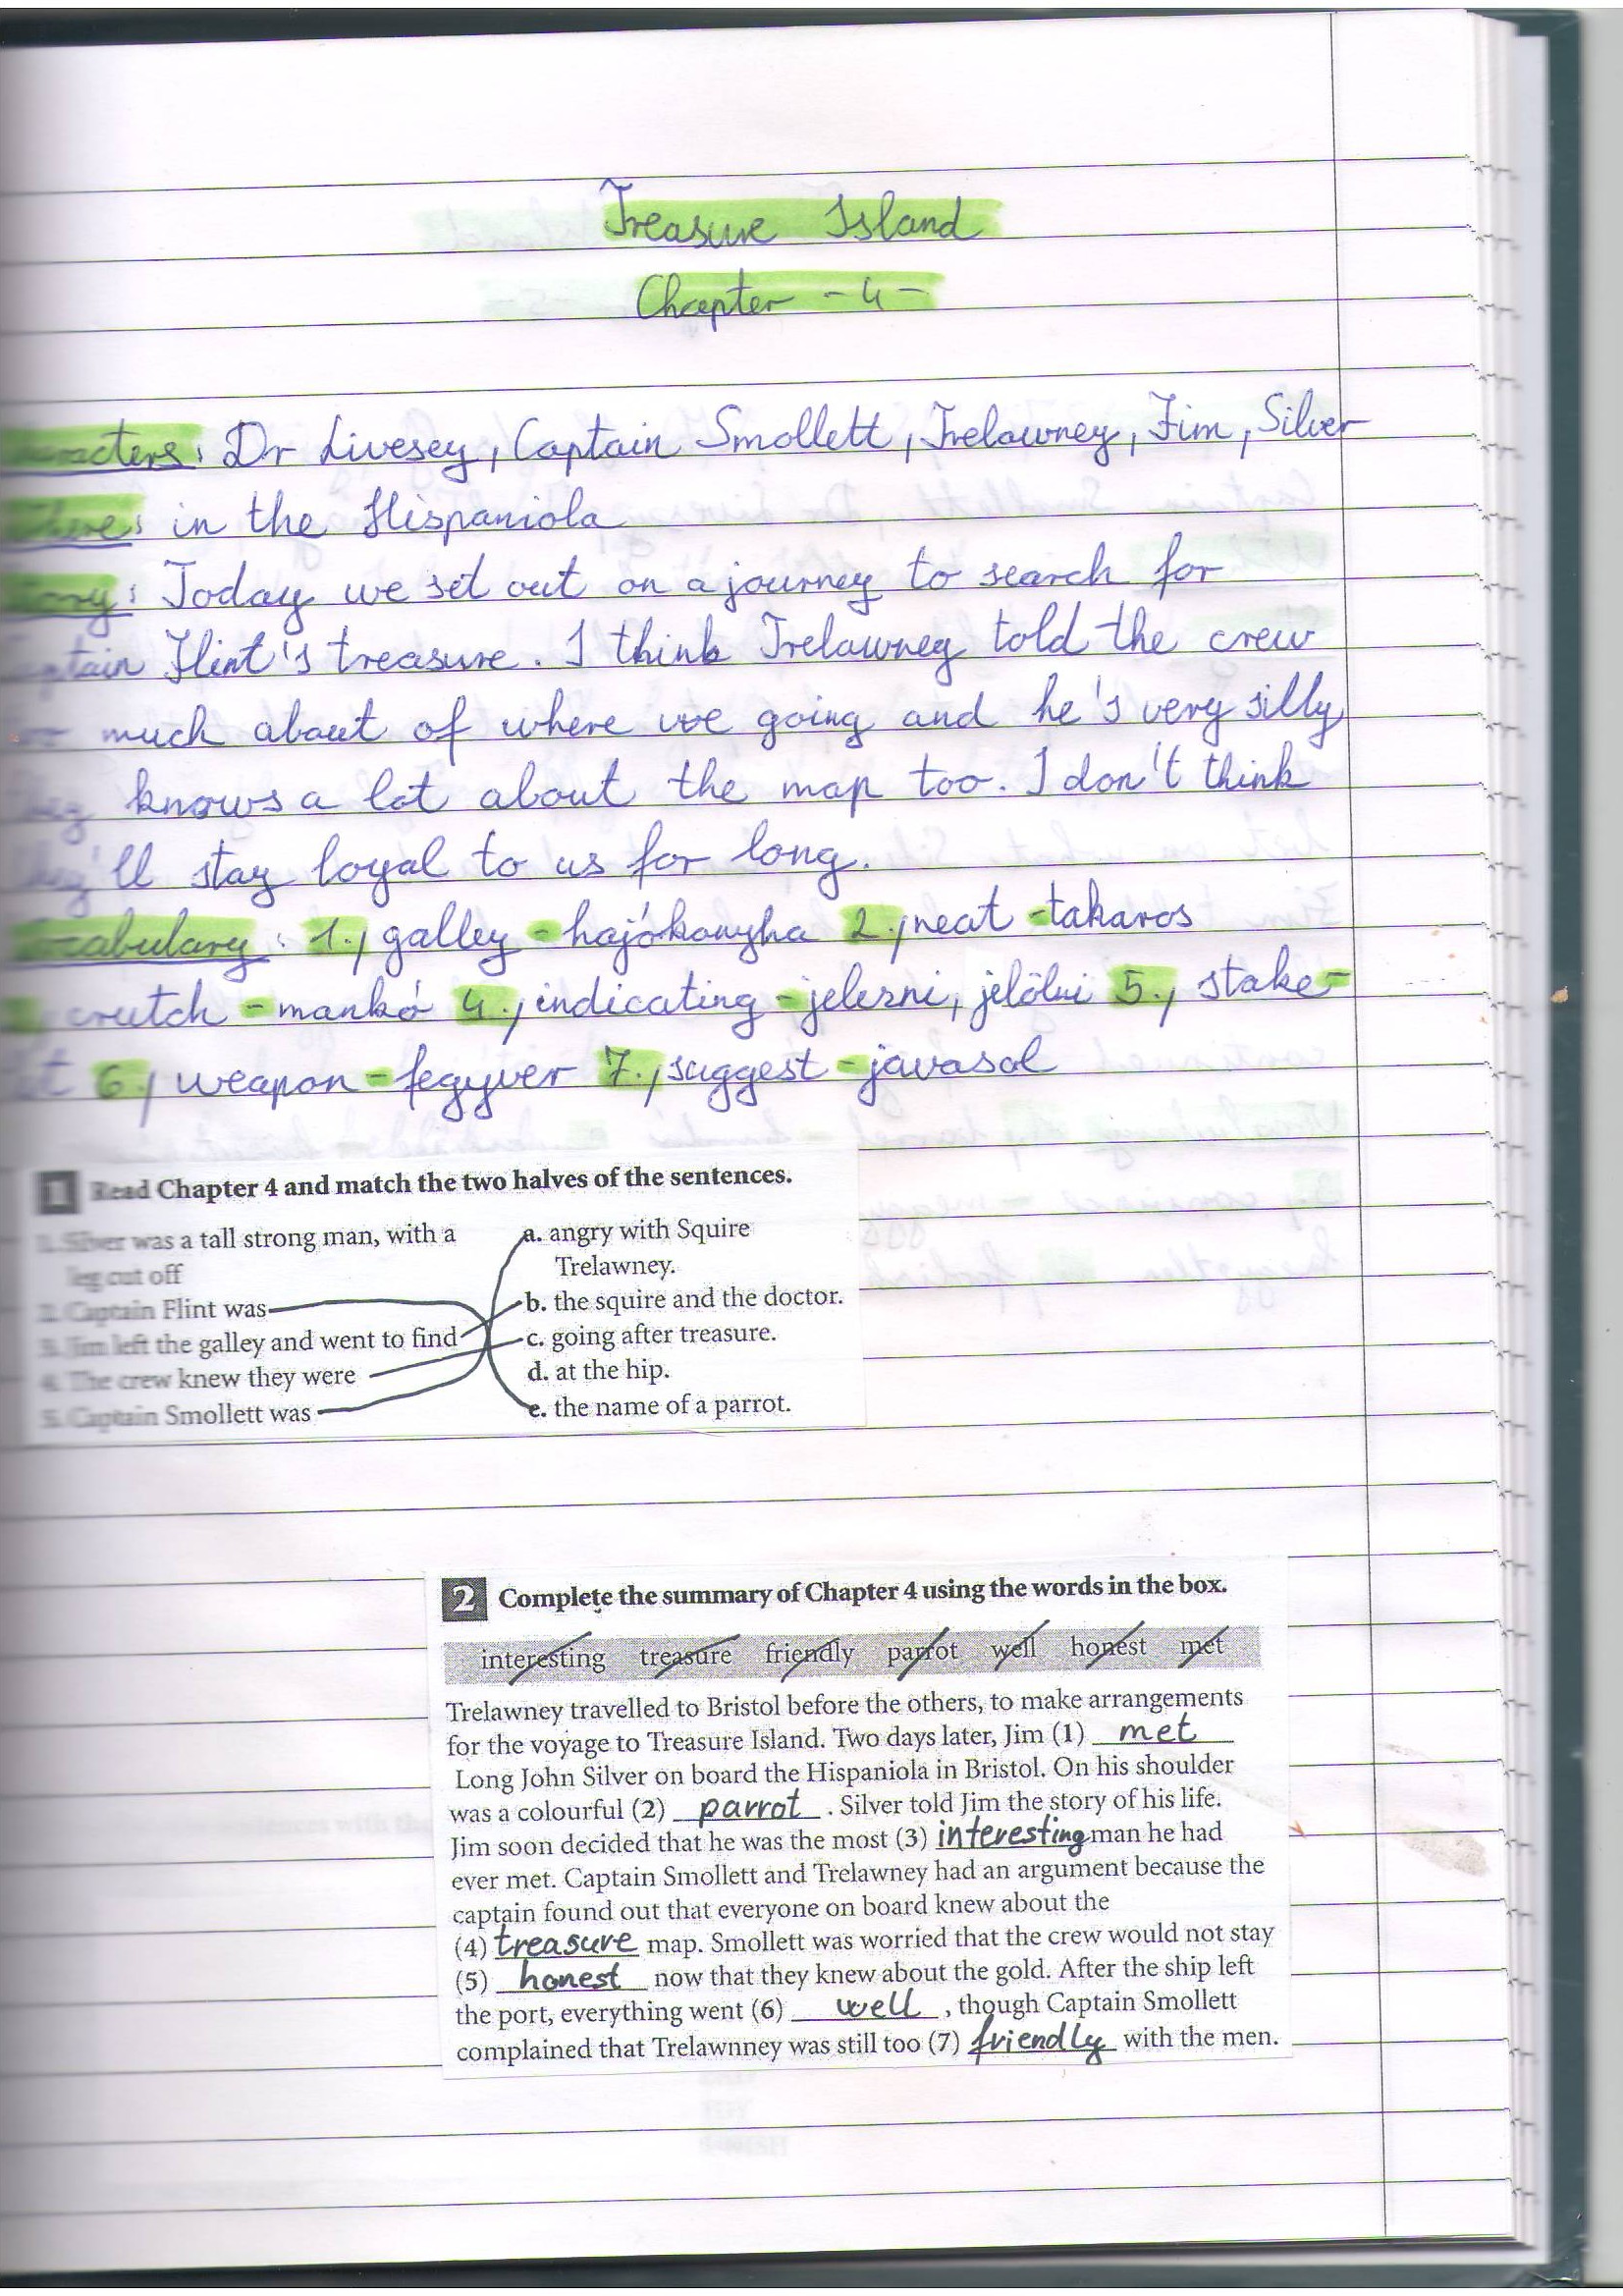 Treasure Island
Chapter - 4 -
Characters: Dr Livesey, Captain Smollett, Trelawney, Jim, Silver
Where: in the Hispaniola
Story: Today we set out on a journey to search for
Captain Flint's treasure. I think Trelawney told the crew
much about of where we going and he's very silly
They knows a lot about the map too. I don't think
they'll stay loyal to us for long.
Vocabulary: 1., galley - hajókonyha 2., neat - takaros
crutch - mankó 4., indicating - jelezni, jelölni 5., stake -
6., weapon - fegyver 7., suggest - javasol
1 Read Chapter 4 and match the two halves of the sentences.
1. Silver was a tall strong man, with a
leg cut off
2. Captain Flint was
3. Jim left the galley and went to find
4. The crew knew they were
5. Captain Smollett was
a. angry with Squire
Trelawney.
b. the squire and the doctor.
c. going after treasure.
d. at the hip.
e. the name of a parrot.
2 Complete the summary of Chapter 4 using the words in the box.
interesting treasure friendly parrot well honest met
Trelawney travelled to Bristol before the others, to make arrangements
for the voyage to Treasure Island. Two days later, Jim (1) met
Long John Silver on board the Hispaniola in Bristol. On his shoulder
was a colourful (2) parrot . Silver told Jim the story of his life.
Jim soon decided that he was the most (3) interesting man he had
ever met. Captain Smollett and Trelawney had an argument because the
captain found out that everyone on board knew about the
(4) treasure map. Smollett was worried that the crew would not stay
(5) honest now that they knew about the gold. After the ship left
the port, everything went (6) well , though Captain Smollett
complained that Trelawnney was still too (7) friendly with the men.